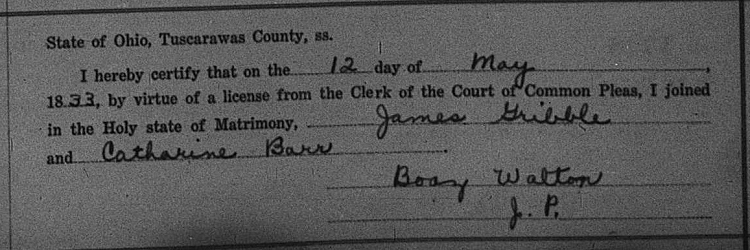 State of Ohio, Tuscarawas County, ss.
I hereby certify that on the 12 day of May,
1833, by virtue of a license from the Clerk of the Court of Common Pleas, I joined
in the Holy state of Matrimony, James Gribble
and Catharine Barr.
Boaz Walton
J. P.